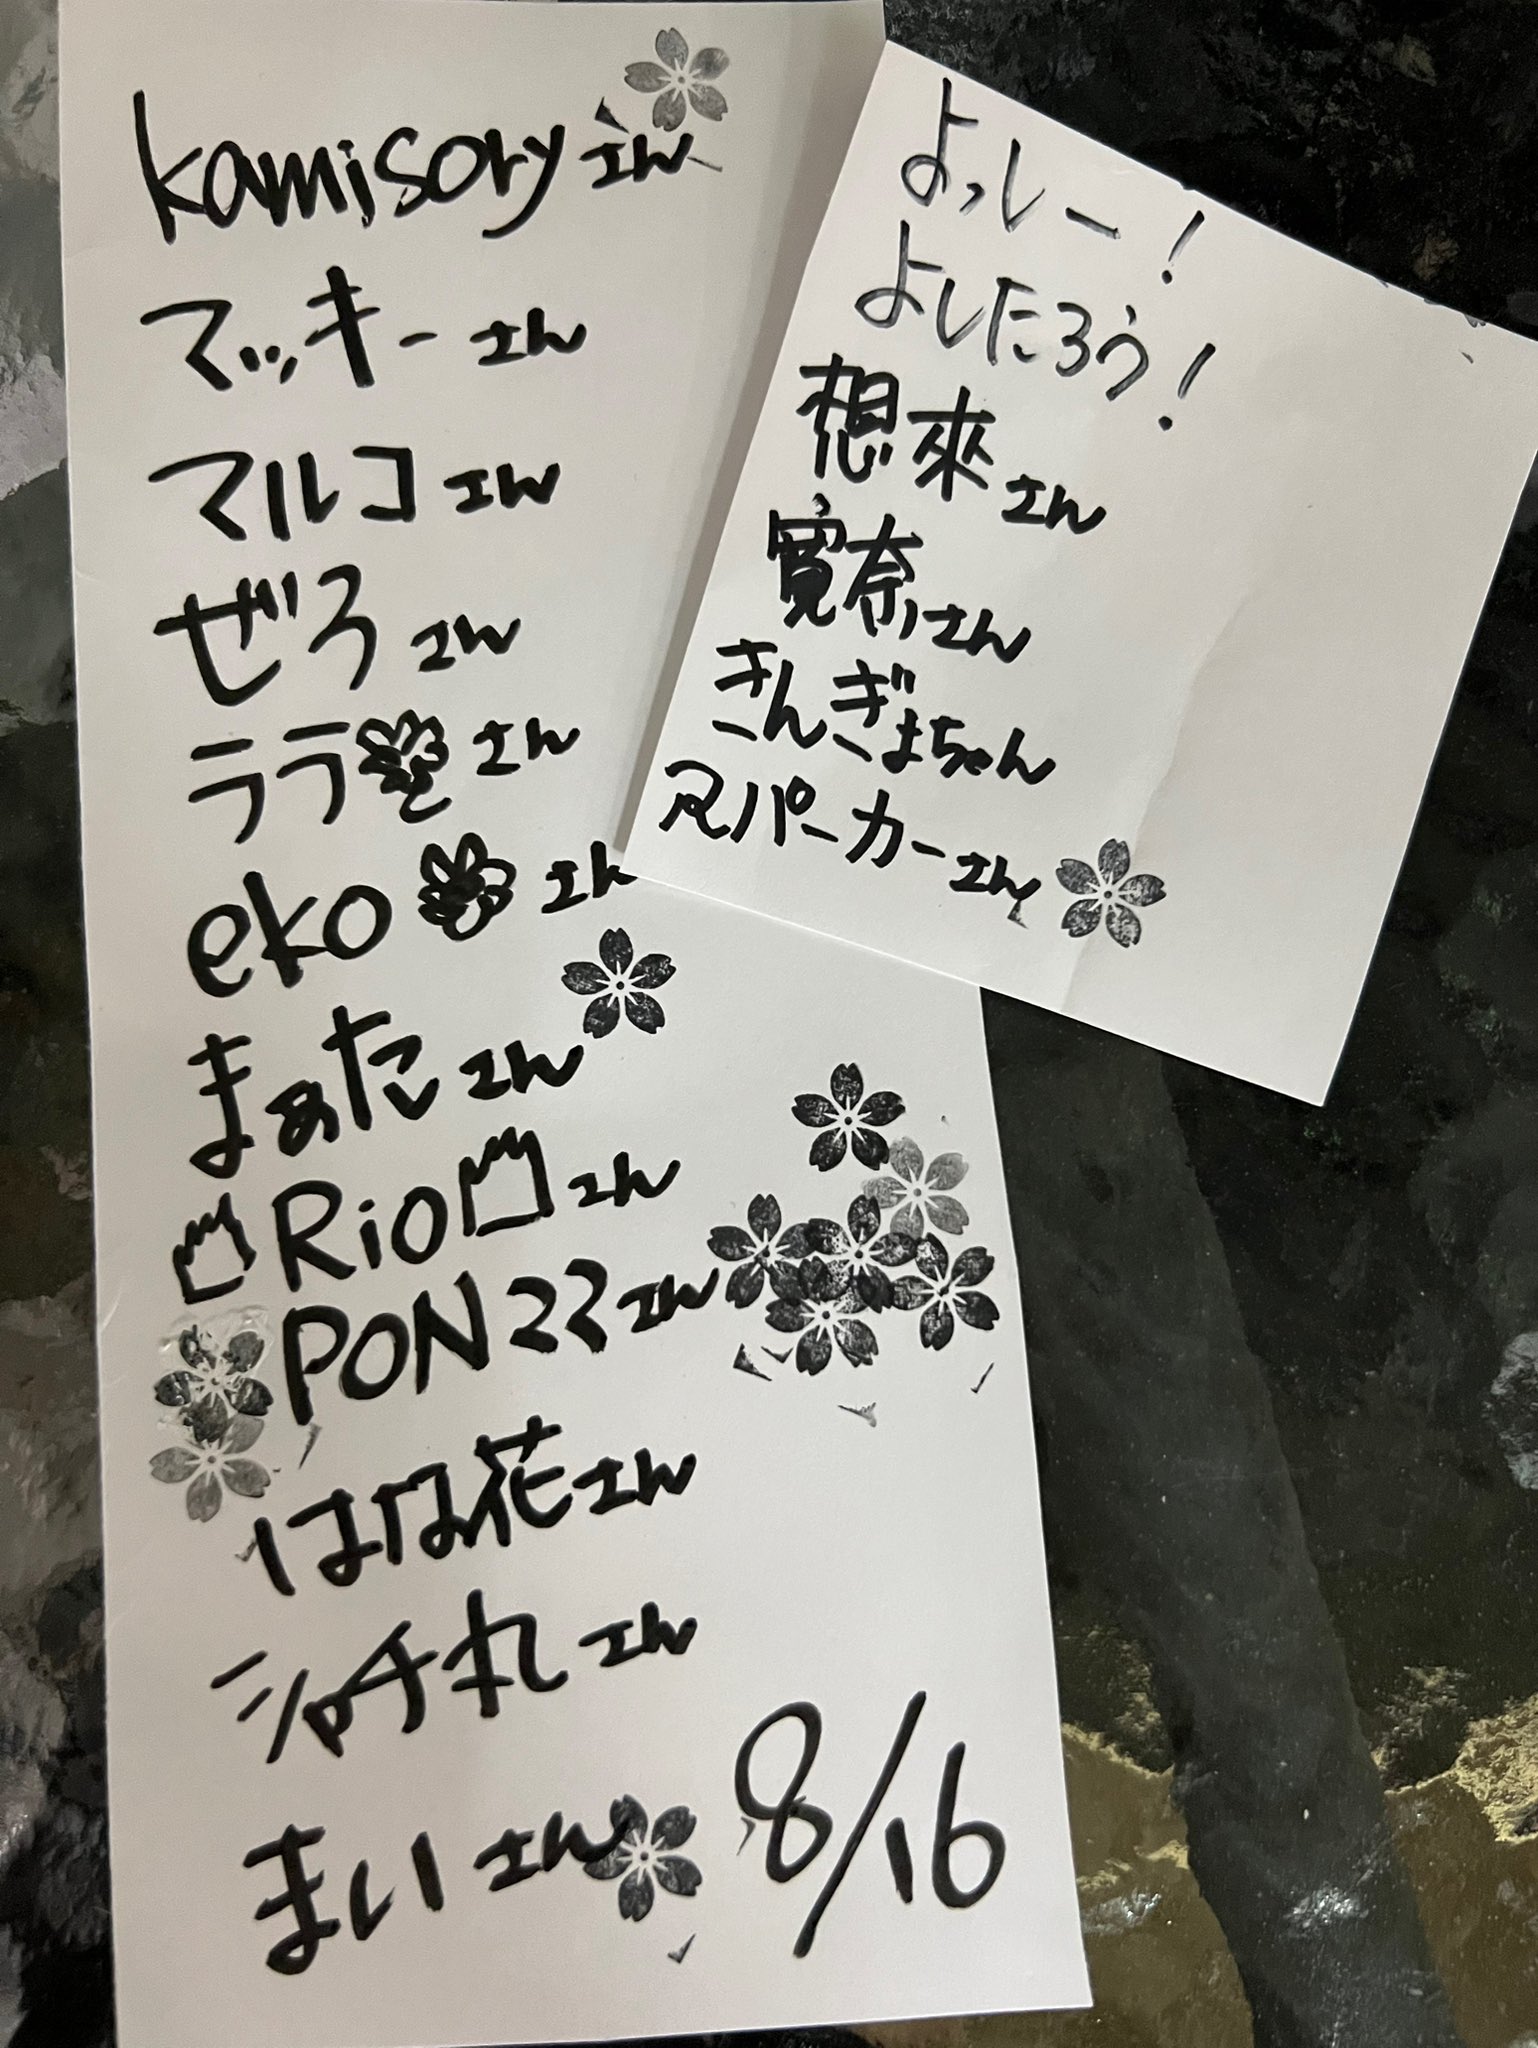 kamisoryさん
マッキーさん
マルコさん
ぜろさん
ララさん
ekoさん
まぁたさん
Rioさん
PON22さん
はな花さん
シャチ丸さん
まいさん
8/16
よっしー！
よしたろう！
想來さん
寛奈さん
きんぎょちゃん
スパーカーさん